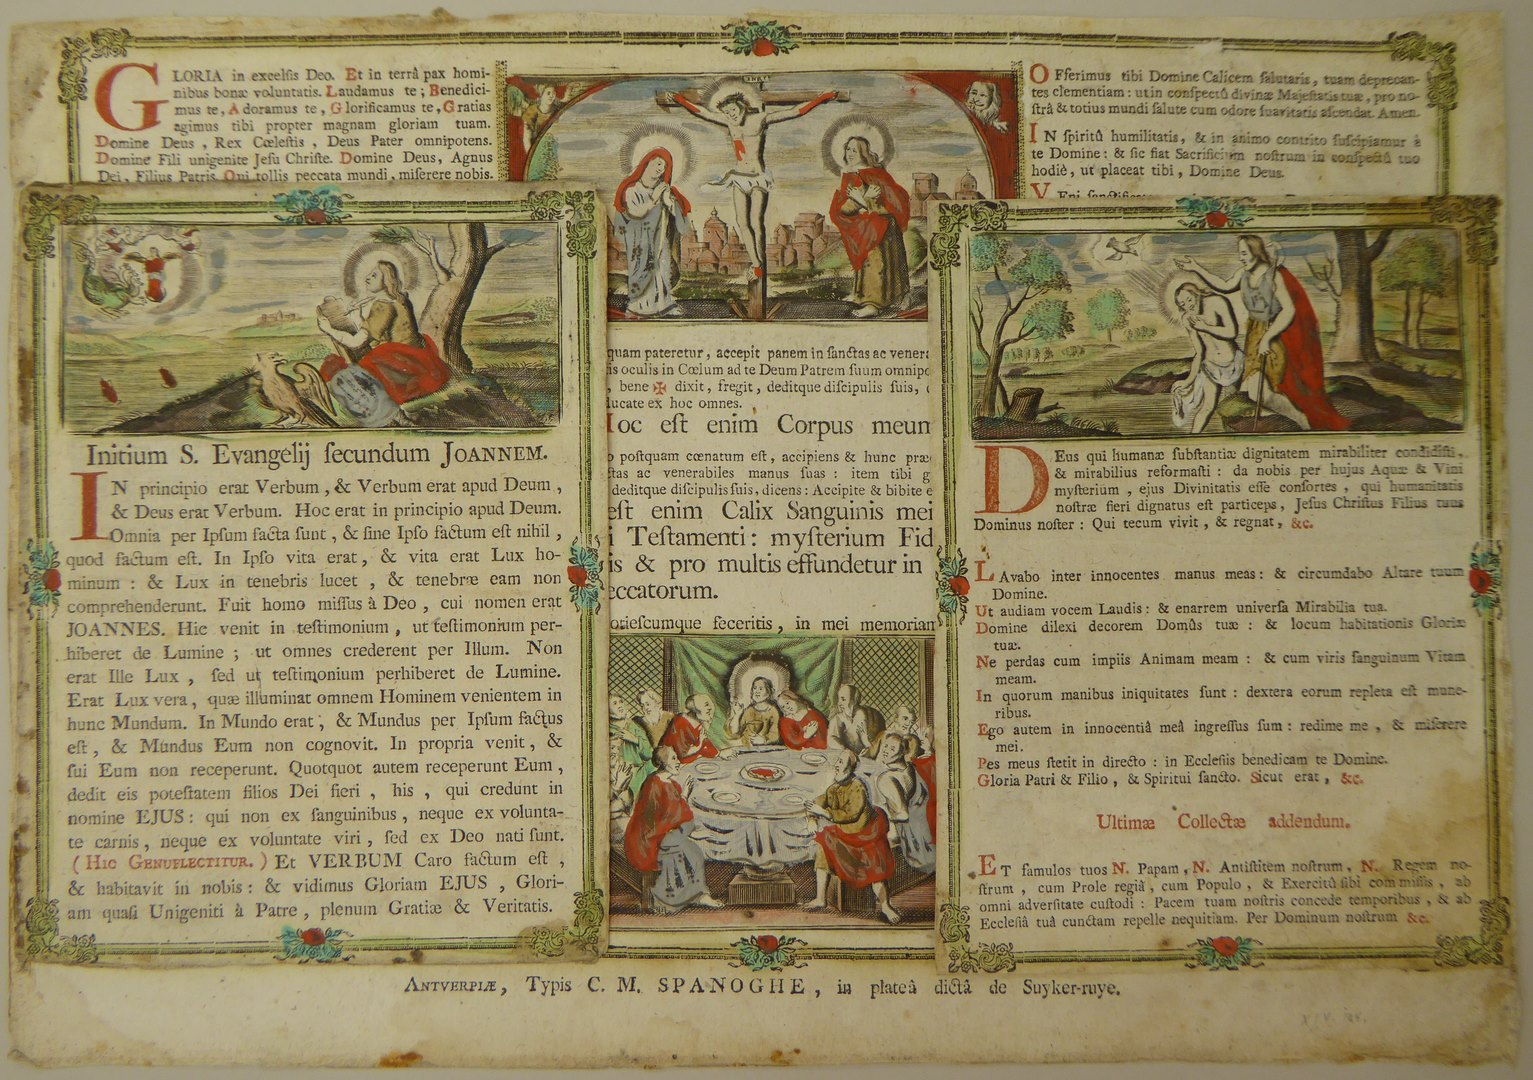 GLORIA in excelsis Deo. Et in terrâ pax homi-
nibus bonæ voluntatis. Laudamus te; Benedici-
mus te, Adoramus te, Glorificamus te, Gratias
agimus tibi propter magnam gloriam tuam.
Domine Deus, Rex Cœlestis, Deus Pater omnipotens.
Domine Fili unigenite Jesu Christe. Domine Deus, Agnus
Dei, Filius Patris. Qui tollis peccata mundi, miserere nobis.
OFferimus tibi Domine Calicem salutaris, tuam deprecan-
tes clementiam: ut in conspectû divinæ Majestatis tuæ, pro no-
strâ & totius mundi salute cum odore suavitatis ascendat. Amen.
IN spiritû humilitatis, & in animo contrito suscipiamur â
te Domine: & sic fiat Sacrificium nostrum in conspectû tuo
hodiè, ut placeat tibi, Domine Deus.
Initium S. Evangelij secundum JOANNEM.
IN principio erat Verbum, & Verbum erat apud Deum,
& Deus erat Verbum. Hoc erat in principio apud Deum.
Omnia per Ipsum facta sunt, & sine Ipso factum est nihil,
quod factum est. In Ipso vita erat, & vita erat Lux ho-
minum: & Lux in tenebris lucet, & tenebræ eam non
comprehenderunt. Fuit homo missus à Deo, cui nomen erat
JOANNES. Hic venit in testimonium, ut testimonium per-
hiberet de Lumine; ut omnes crederent per Illum. Non
erat Ille Lux, sed ut testimonium perhiberet de Lumine.
Erat Lux vera, quæ illuminat omnem Hominem venientem in
hunc Mundum. In Mundo erat, & Mundus per Ipsum factus
est, & Mundus Eum non cognovit. In propria venit, &
sui Eum non receperunt. Quotquot autem receperunt Eum,
dedit eis potestatem filios Dei fieri, his, qui credunt in
nomine EJUS: qui non ex sanguinibus, neque ex volunta-
te carnis, neque ex voluntate viri, sed ex Deo nati sunt.
(HIC GENUFLECTITUR.) Et VERBUM Caro factum est,
& habitavit in nobis: & vidimus Gloriam EJUS, Glori-
am quasi Unigeniti à Patre, plenum Gratiæ & Veritatis.
quam pateretur, accepit panem in sanctas ac venera
is oculis in Cœlum ad te Deum Patrem suum omnipo
, bene ✠ dixit, fregit, deditque discipulis suis,
ducate ex hoc omnes.
Hoc est enim Corpus meum
postquam cœnatum est, accipiens & hunc præc
ctas ac venerabiles manus suas: item tibi g
deditque discipulis suis, dicens: Accipite & bibite e
est enim Calix Sanguinis mei
i Testamenti: mysterium Fid
is & pro multis effundetur in
eccatorum.
otiescumque feceritis, in mei memoriam
DEus qui humanæ substantiæ dignitatem mirabiliter condidisti,
& mirabilius reformasti: da nobis per hujus Aquæ & Vini
mysterium, ejus Divinitatis esse consortes, qui humanitatis
nostræ fieri dignatus est particeps, Jesus Christus Filius tuus
Dominus noster: Qui tecum vivit, & regnat, &c.
LAvabo inter innocentes manus meas: & circumdabo Altare tuum
Domine.
Ut audiam vocem Laudis: & enarrem universa Mirabilia tua.
Domine dilexi decorem Domûs tuæ: & locum habitationis Gloriæ
tuæ.
Ne perdas cum impiis Animam meam: & cum viris sanguinum Vitam
meam.
In quorum manibus iniquitates sunt: dextera eorum repleta est mune-
ribus.
Ego autem in innocentiâ meâ ingressus sum: redime me, & miserere
mei.
Pes meus stetit in directo: in Ecclesiis benedicam te Domine.
Gloria Patri & Filio, & Spiritui sancto. Sicut erat, &c.
Ultimæ Collectæ addendum.
ET famulos tuos N. Papam, N. Antistitem nostrum, N. Regem no-
strum, cum Prole regiâ, cum Populo, & Exercitû sibi commissis, ab
omni adversitate custodi: Pacem tuam nostris concede temporibus, & ab
Ecclesiâ tuâ cunctam repelle nequitiam. Per Dominum nostrum &c.
ANTVERPIÆ, Typis C. M. SPANOGHE, in plateâ dictâ de Suyker-ruye.